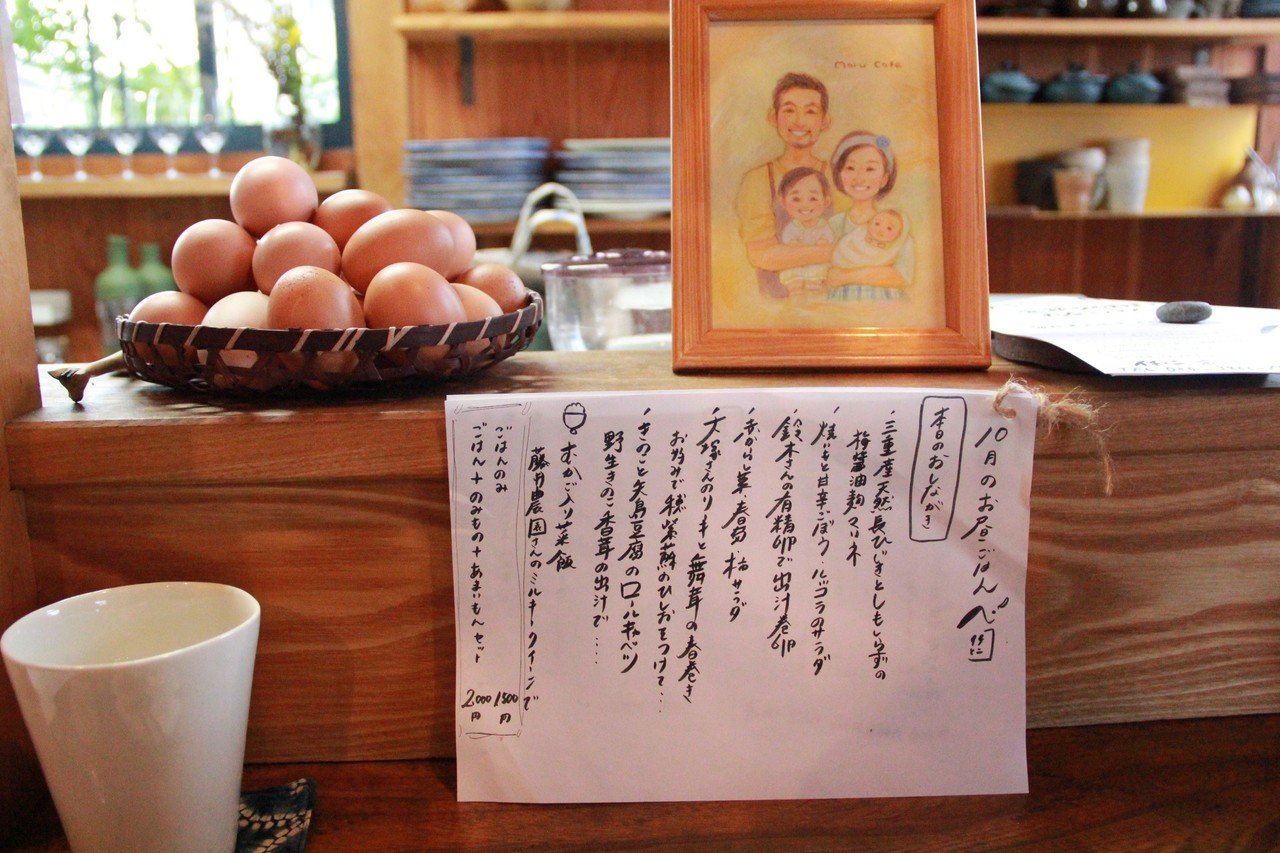 Maru Cafe
10月のお昼ごはん
本日のおしながき
三重産天然長ひじきとしもしらずの
梅醤油麹マリネ
焼いもと甘辛ごぼう、ルッコラのサラダ
鈴木さんの有精卵で出汁巻卵
赤からし菜、春菊、柿サラダ
大塚さんのリーキと舞茸の春巻き
お好みで穂紫蘇のひしおをつけて…
きのこと矢島豆腐のロールキャベツ
野生きのこ香茸の出汁で…
むかご入り菜飯
藤井農園さんのミルキークイーンで
ごはんのみ 1500円
ごはん+のみもの+あまいもんセット 2000円